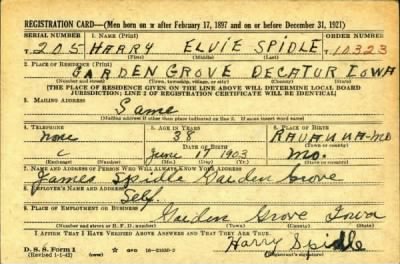 REGISTRATION CARD—(Men born on or after February 17, 1897 and on or before December 31, 1921)
SERIAL NUMBER 1. NAME (Print) ORDER NUMBER
T 205 HARRY ELVIE SPIDLE T 10323
(First) (Middle) (Last)
2. PLACE OF RESIDENCE (Print)
GARDEN GROVE DECATUR IOWA
(Number and street) (Town, township, village, or city) (County) (State)
[THE PLACE OF RESIDENCE GIVEN ON THE LINE ABOVE WILL DETERMINE LOCAL BOARD
JURISDICTION; LINE 2 OF REGISTRATION CERTIFICATE WILL BE IDENTICAL]
3. MAILING ADDRESS
Same
(Mailing address if other than place indicated on line 2. If same insert word same)
4. TELEPHONE 5. AGE IN YEARS 6. PLACE OF BIRTH
none 38 RAVANNA-MO
DATE OF BIRTH (Town or county)
June 17 1903 Mo.
(Exchange) (Number) (Mo.) (Day) (Yr.) (State or country)
7. NAME AND ADDRESS OF PERSON WHO WILL ALWAYS KNOW YOUR ADDRESS
James Spidle Garden Grove
8. EMPLOYER'S NAME AND ADDRESS
Self.
9. PLACE OF EMPLOYMENT OR BUSINESS
Garden Grove Iowa
(Number and street or R. F. D. number) (Town) (County) (State)
I AFFIRM THAT I HAVE VERIFIED ABOVE ANSWERS AND THAT THEY ARE TRUE.
D. S. S. Form 1 Harry Spidle
(Revised 1-1-42) (Registrant's signature)